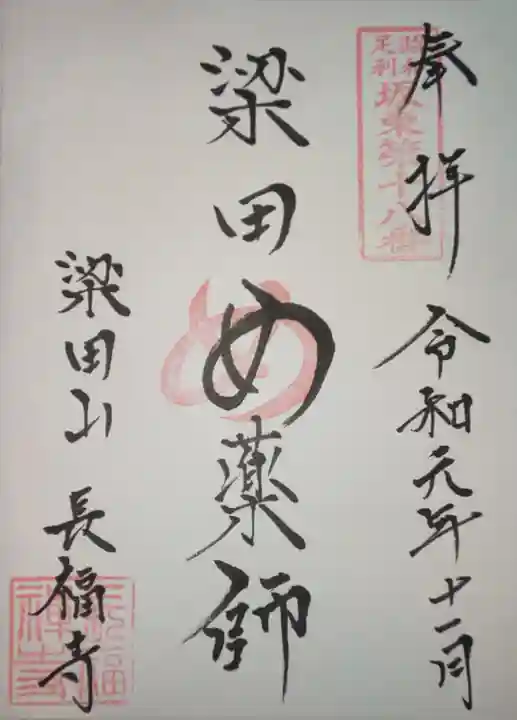 奉拝 令和元年十一月
足利
坂東第十八番
梁田め薬師
め
梁田山 長福寺